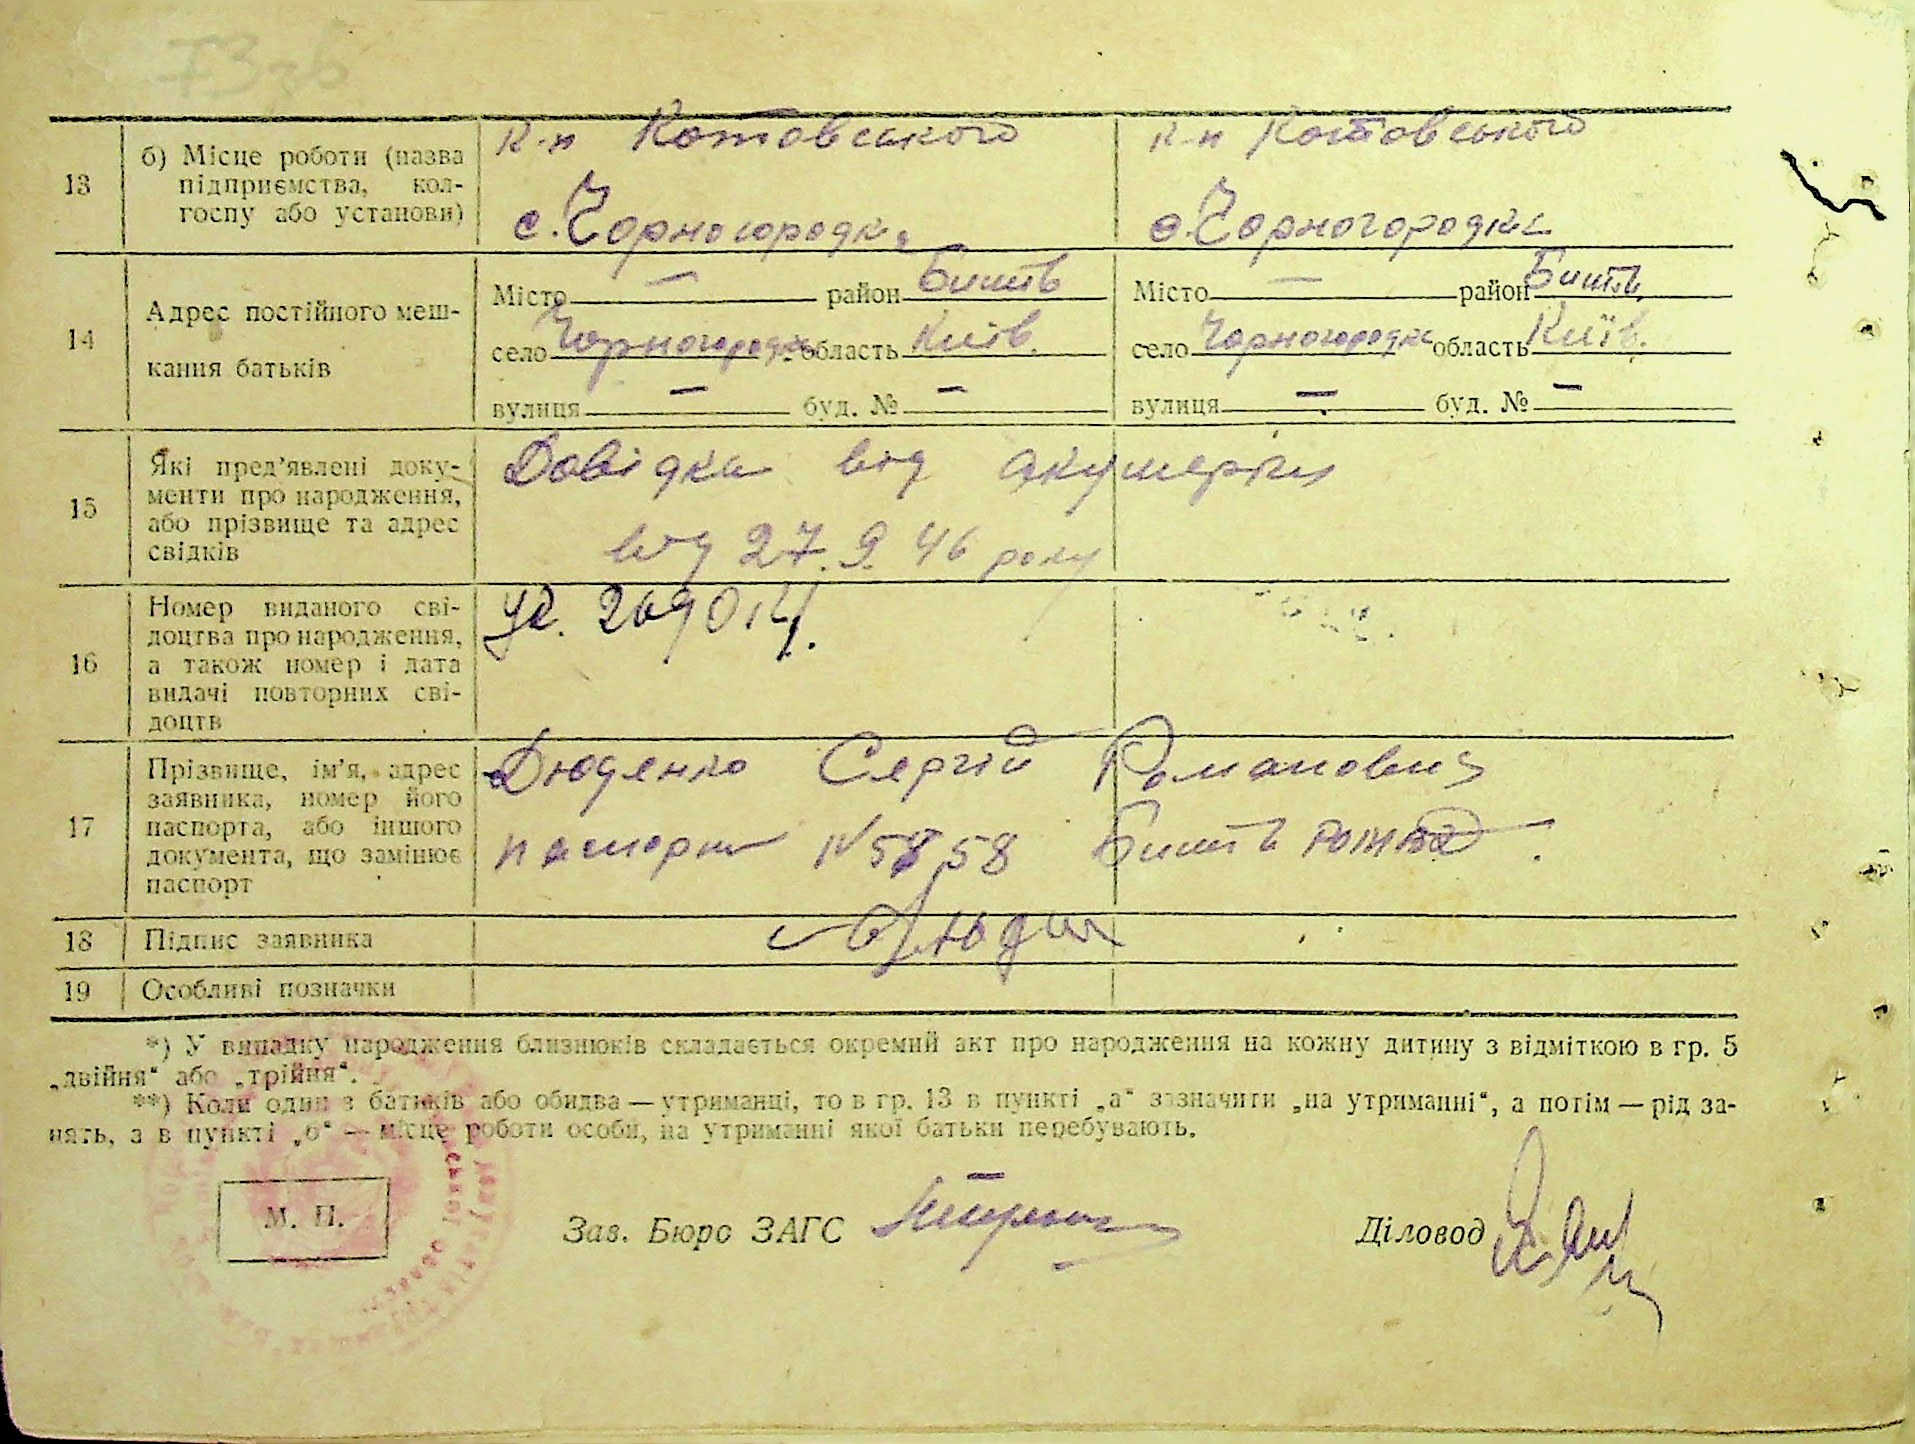 13
б) Місце роботи (назва
підприємства, кол-
госпу або установи)
к-п Котовського
с. Чорногородка
к-п Котовського
с. Чорногородка
14
Адрес постійного меш-
кання батьків
Місто — район Бишів
село Чорногородка область Київ.
вулиця — буд. № —
Місто — район Бишів
село Чорногородка область Київ.
вулиця — буд. № —
15
Які пред’явлені доку-
менти про народження,
або прізвище та адрес
свідків
Довідка від акушерки
від 27.9.46 року
16
Номер виданого сві-
доцтва про народження,
а також номер і дата
видачі повторних сві-
доцтв
17
Прізвище, ім’я, адрес
заявника, номер його
паспорта, або іншого
документа, що замінює
паспорт
Дюденко Сергій Романович
паспорт Бишів
18
Підпис заявника
19
Особливі позначки
*) У випадку народження близнюків складається окремий акт про народження на кожну дитину з відміткою в гр. 5
„двійня“ або „трійня“.
**) Коли один з батьків або обидва — утриманці, то в гр. 13 в пункті „а“ зазначити „на утриманні“, а потім — рід за-
нять, а в пункті „б“ — місце роботи особи, на утриманні якої батьки перебувають.
М. П.
Зав. Бюро ЗАГС
Діловод